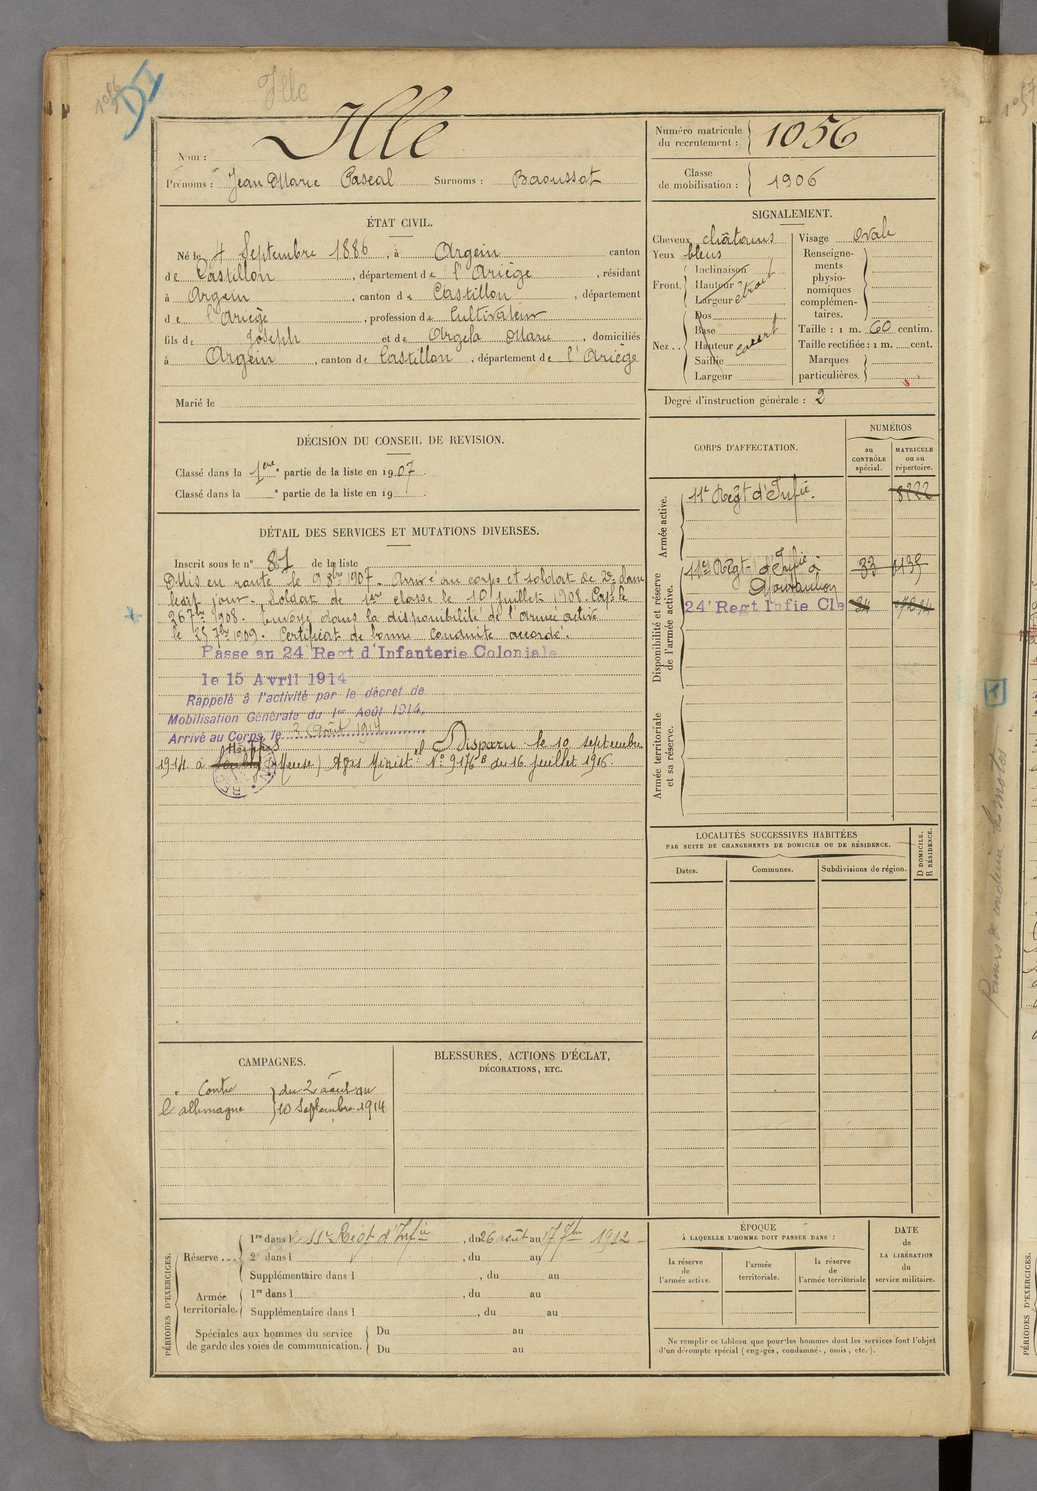 Ille
1056
Ille
Nom :
Prénoms : Jean Marie Pascal Surnoms : Baoussot
Numéro matricule du recrutement : 1056
Classe de mobilisation : 1906
ÉTAT CIVIL.
Né le 4 Septembre 1886, à Argein canton
de Castillon, département de l'Ariège, résidant
à Argein, canton de Castillon, département
de l'Ariège, profession de Cultivateur
fils de Joseph et de Argela Marie, domiciliés
à Argein, canton de Castillon, département de l'Ariège
Marié le
SIGNALEMENT.
Cheveux châtains
Yeux bleus
Front. Inclinaison
Hauteur étroit
Largeur
Nez . . Dos
Base
Hauteur
Saillie
Largeur
Visage Ovale
Renseignements physionomiques complémentaires.
Taille : 1 m. 60 centim.
Taille rectifiée : 1 m. cent.
Marques particulières.
Degré d'instruction générale : 2
DÉCISION DU CONSEIL DE REVISION.
Classé dans la 1ere partie de la liste en 1907.
Classé dans la e partie de la liste en 19
CORPS D'AFFECTATION.
NUMÉROS
au CONTRÔLE spécial.
MATRICULE ou au répertoire.
Armée active.
11e Régt d'Infie. 8222
Disponibilité et réserve de l'armée active.
11e Régt d'Infie à 33 1135
Montauban
24e Regt Infie Cle
Armée territoriale et sa réserve.
DÉTAIL DES SERVICES ET MUTATIONS DIVERSES.
Inscrit sous le n° 81 de la liste
Mis en route le 9 8bre 1907. Arrivé au corps et soldat de 2e dudit jour. Soldat de 1ere classe le 10 juillet 1908. Cap. le
26 7bre 1908. Envoyé dans la disponibilité de l'armée active
le 25 7bre 1909. Certificat de bonne conduite accordé.
Passé au 24e Regt d'Infanterie Coloniale
le 15 Avril 1914
Rappelé à l'activité par le décret de
Mobilisation Générale du 1er Août 1914,
Arrivé au Corps, le 3 Août 1914
Disparu le 10 septembre
1914 à (Meuse) Avis Ministel N° 9176 B du 16 juillet 1916.
LOCALITÉS SUCCESSIVES HABITÉES
PAR SUITE DE CHANGEMENTS DE DOMICILE OU DE RÉSIDENCE.
Dates. Communes. Subdivisions de région. D DOMICILE. R RÉSIDENCE.
CAMPAGNES.
Contre du 2 août au
l'allemagne 10 Septembre 1914
BLESSURES, ACTIONS D'ÉCLAT,
DÉCORATIONS, ETC.
PÉRIODES D'EXERCICES.
Réserve . . . 1re dans le 11e Régt d'Infie, du 26 août au 17 7bre 1912
2e dans l , du au
Supplémentaire dans l , du au
Armée territoriale. 1re dans l , du au
Supplémentaire dans l , du au
Spéciales aux hommes du service de garde des voies de communication. Du au
Du au
ÉPOQUE
À LAQUELLE L'HOMME DOIT PASSER DANS :
la réserve de l'armée active.
l'armée territoriale.
la réserve de l'armée territoriale
DATE de LA LIBÉRATION du service militaire.
Ne remplir ce tableau que pour les hommes dont les services font l'objet
d'un décompte spécial (engagés, condamnés, omis, etc.).
PÉRIODES D'EXERCICES.